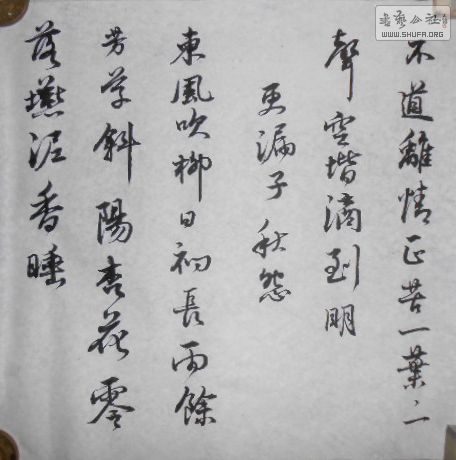 不道離情正苦一葉〻
聲空堦滴到明
更漏子秋怨
東風吹柳日初長雨餘
芳草斜陽杏花零
落燕泥香睡
書藝公社
WWW.SHUFA.ORG